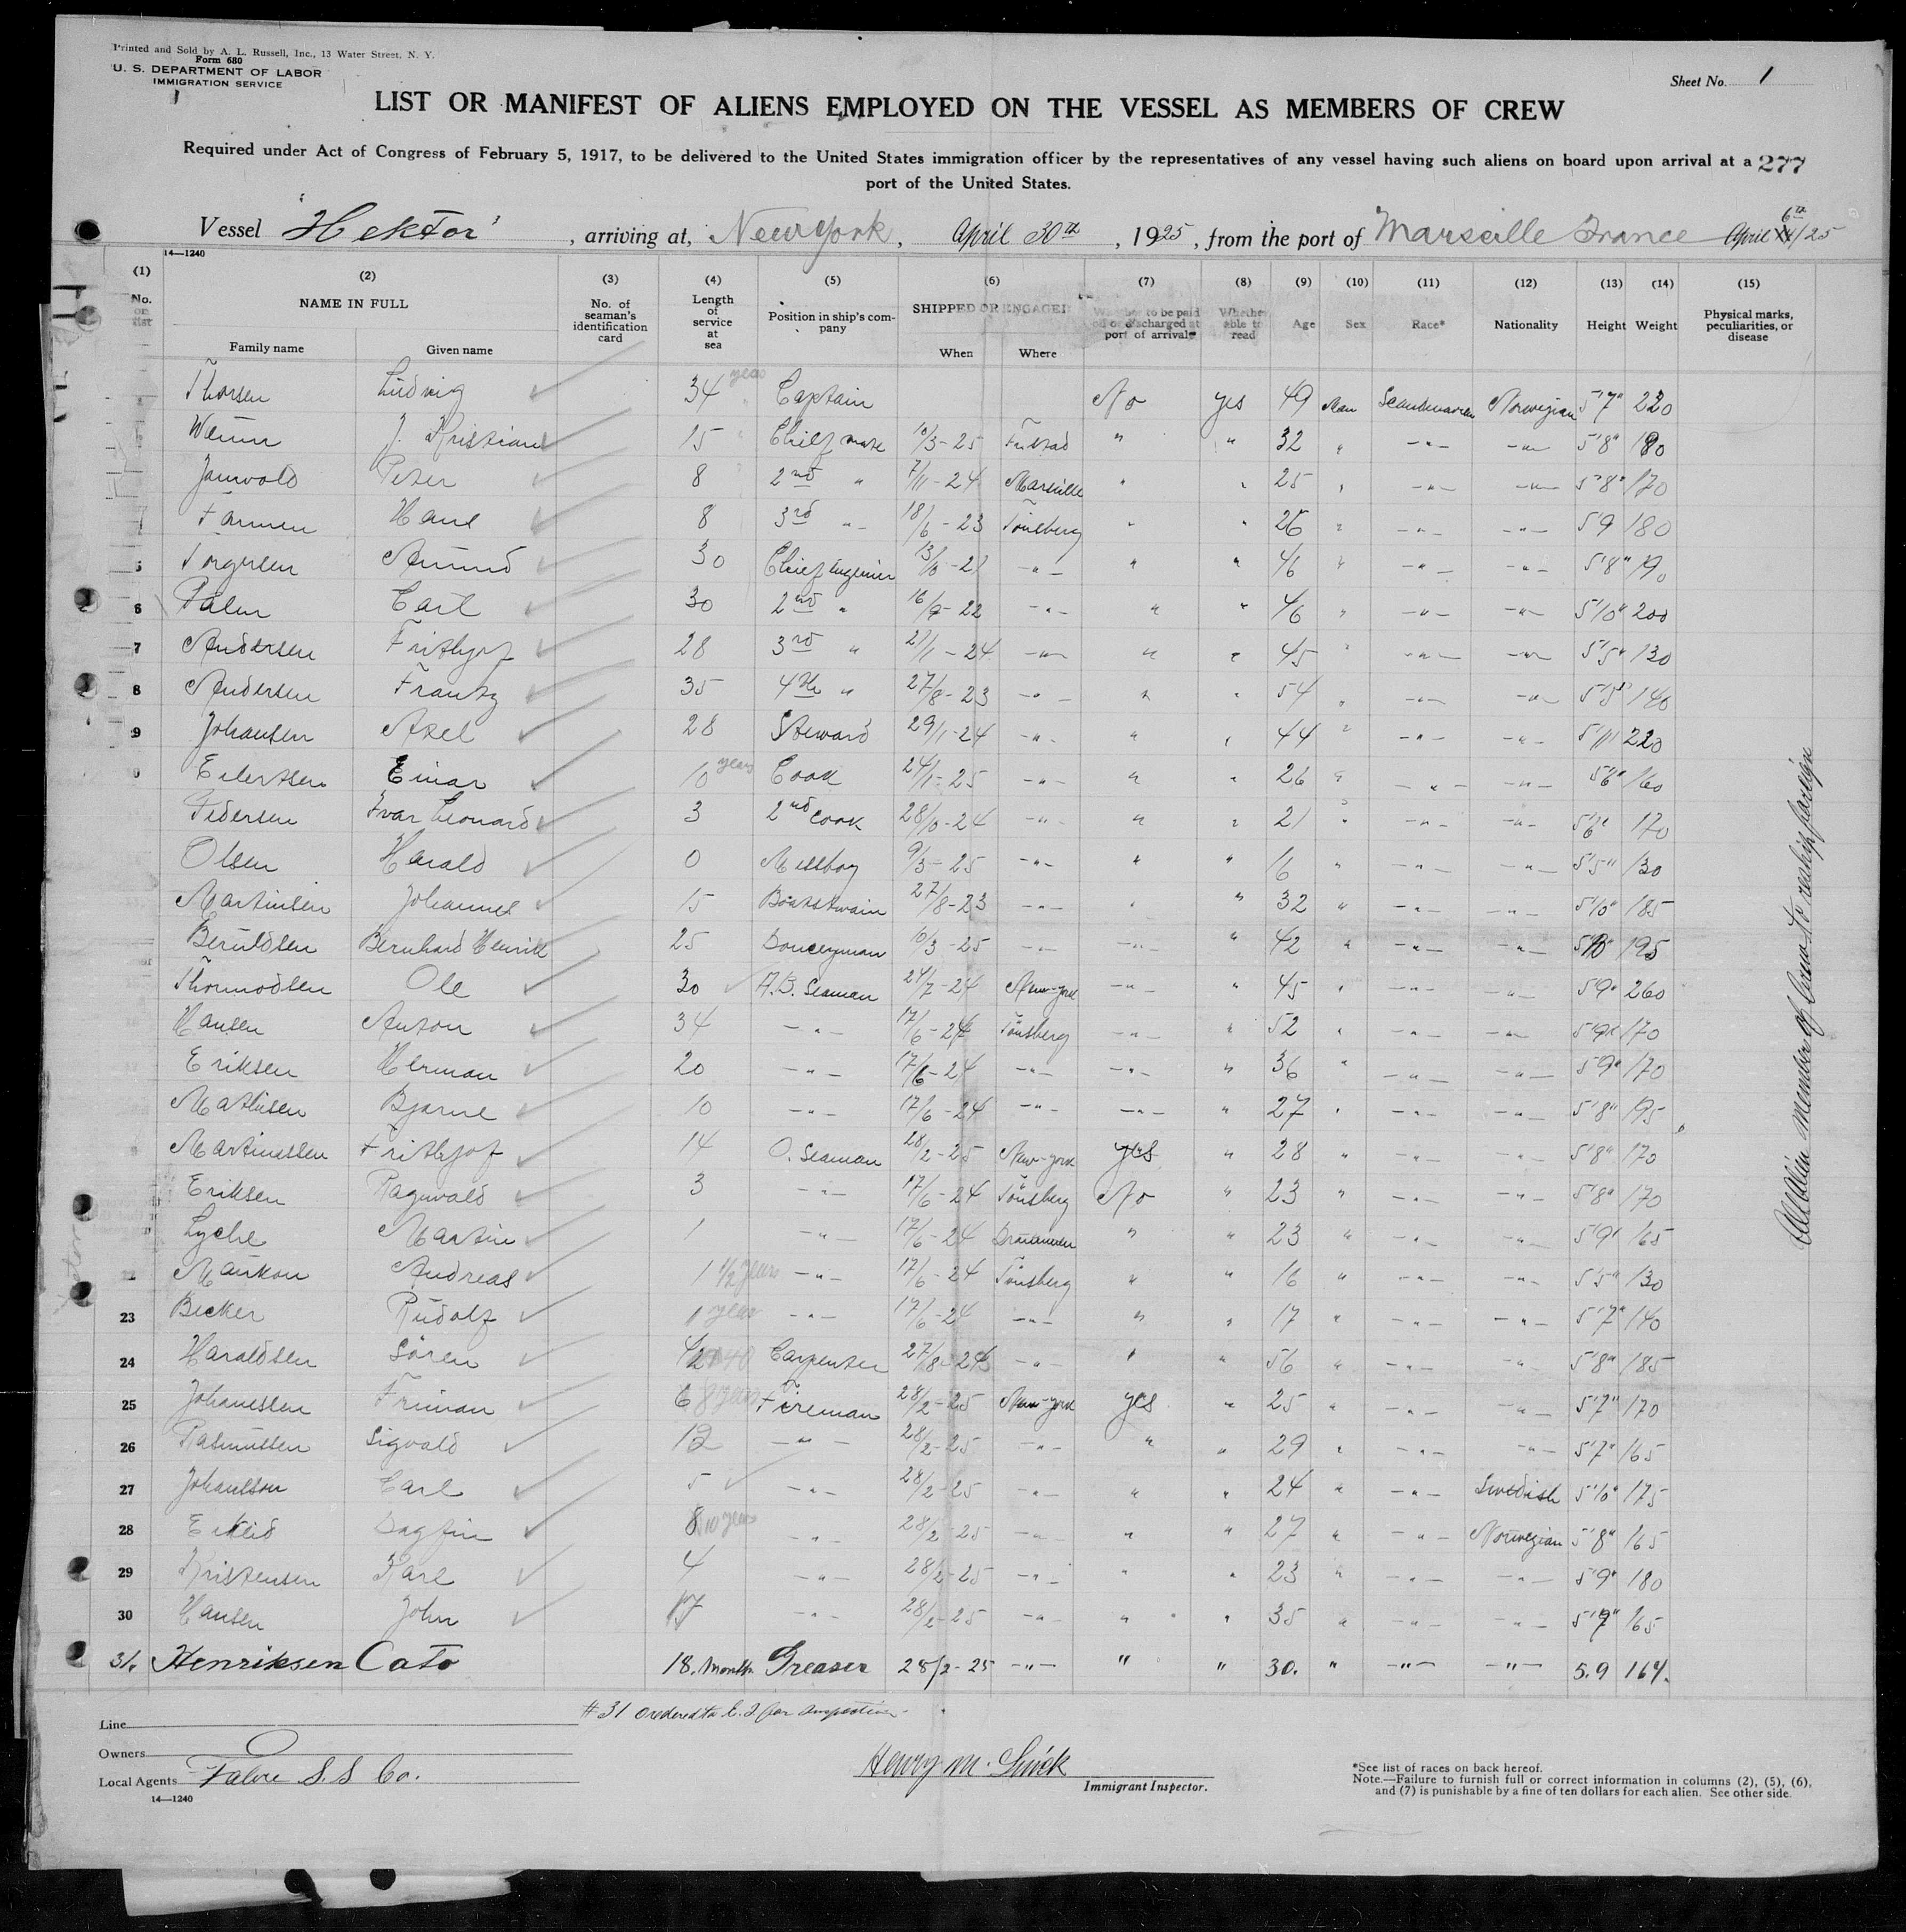 Printed and Sold by A. L. Russell, Inc., 13 Water Street, N. Y.
Form 680
U. S. DEPARTMENT OF LABOR
IMMIGRATION SERVICE
Sheet No. 1
LIST OR MANIFEST OF ALIENS EMPLOYED ON THE VESSEL AS MEMBERS OF CREW
Required under Act of Congress of February 5, 1917, to be delivered to the United States immigration officer by the representatives of any vessel having such aliens on board upon arrival at a 277
port of the United States.
Vessel "Hektor", arriving at, New York, April 30th, 1925, from the port of Marseille France April 6th/25
14—1240
(1) (2) (3) (4) (5) (6) (7) (8) (9) (10) (11) (12) (13) (14) (15)
No. on list NAME IN FULL No. of seaman's identification card Length of service at sea Position in ship's company SHIPPED OR ENGAGED Whether to be paid off or discharged at port of arrival Whether able to read Age Sex Race* Nationality Height Weight Physical marks, peculiarities, or disease
Family name Given name When Where
Thorsen Ludvig 34 years Captain No yes 49 Man Scandinavien Norwegian 5'7" 220
J. Kristian 15 Chief mate 10/3-25 " " 32 " -"- -"- 5'8" 180
Peter 8 2nd " 7/11-24 Marseille " " 25 " -"- -"- 5'8" 170
Hans 8 3rd -"- 18/6-23 Tönsberg " " 26 " -"- -"- 5'9 180
5 Torgersen Amund 30 Chief Engenier -"- " " 46 " -"- -"- 5'8" 190
6 Palm Carl 30 2nd " 16/9-22 -"- " " 46 " -"- -"- 5'10" 200
7 Andersen Frithjof 28 3rd " 21/1-24 -"- " " 45 " -"- -"- 5'5" 130
8 Andersen Frantz 35 4th " 27/8-23 -"- " " 54 " -"- -"- 5'5" 140
9 Johansen Axel 28 Steward 29/1-24 -"- " " 44 " -"- -"- 5'11" 220
Eilertsen Einar 10 years Cook 24/1-25 -"- " " 26 " -"- -"- 5'6" 160
Pedersen Ivar Leonard 3 2nd cook 28/10-24 -"- " " 21 " -"- -"- 5'6" 170
Olsen Harald 0 Messboy 9/3-25 -"- " " 16 " -"- -"- 5'5" 130
Martinsen Johannes 15 Boatstwain 27/8-23 -"- " " 32 " -"- -"- 5'10" 185
Beruldsen Bernhard Henrik 25 Donceyman 10/3-25 -"- -"- " 42 " -"- -"- 5'10" 195
Thormodsen Ole 30 A.B. Seaman 24/7-24 New-york -"- " 45 " -"- -"- 5'9" 260
Hansen Anton 34 -"- 17/6-24 Tönsberg -"- " 52 " -"- -"- 5'9" 170
Eriksen Herman 20 -"- 17/6-24 -"- -"- " 36 " -"- -"- 5'9" 170
Mathisen Bjarne 10 -"- 17/6-24 -"- -"- " 27 " -"- -"- 5'8" 195
Martinssen Frithjof 14 O. Seaman 28/2-25 New-york yes " 28 " -"- -"- 5'8" 170
Eriksen Ragnvald 3 -"- 17/6-24 Tönsberg No " 23 " -"- -"- 5'8" 170
Lyche Martin 1 -"- 17/6-24 " " 23 " -"- -"- 5'9" 165
22 Andreas 1 1/2 years -"- 17/6-24 Tönsberg " " 16 " -"- -"- 5'5" 130
23 Becker Rudolf 1 year -"- 17/6-24 -"- " " 17 " -"- -"- 5'7" 140
24 Haraldsen Sören 40 Carpenter -"- " " 56 " -"- -"- 5'8" 185
25 Johanssen Friman 6 8 years Fireman 28/2-25 New-york yes " 25 " -"- -"- 5'7" 170
26 Rasmussen Sigvald 12 -"- 28/2-25 -"- " " 29 " -"- -"- 5'7" 165
27 Johansson Carl 5 -"- 28/2-25 -"- " " 24 " -"- Swedish 5'10" 175
28 Dagfin 8 10 years -"- 28/2-25 -"- " " 27 " -"- Norwegian 5'8" 165
29 Kristensen Karl 4 -"- 28/2-25 -"- " " 23 " -"- -"- 5'9" 180
30 Hansen John 17 -"- 28/2-25 -"- " " 35 " -"- -"- 5'9" 165
31. Henriksen Cato 18. Months Greaser 28/2-25 -"- " " 30. " -"- -"- 5.9 164.
All Alien members of Crew to reship foreign
#31 ordered to E. I for inspection
Line
Owners
Local Agents Fabre S.S Co.
14—1240
Henry M.
Immigrant Inspector.
*See list of races on back hereof.
Note.—Failure to furnish full or correct information in columns (2), (5), (6),
and (7) is punishable by a fine of ten dollars for each alien. See other side.